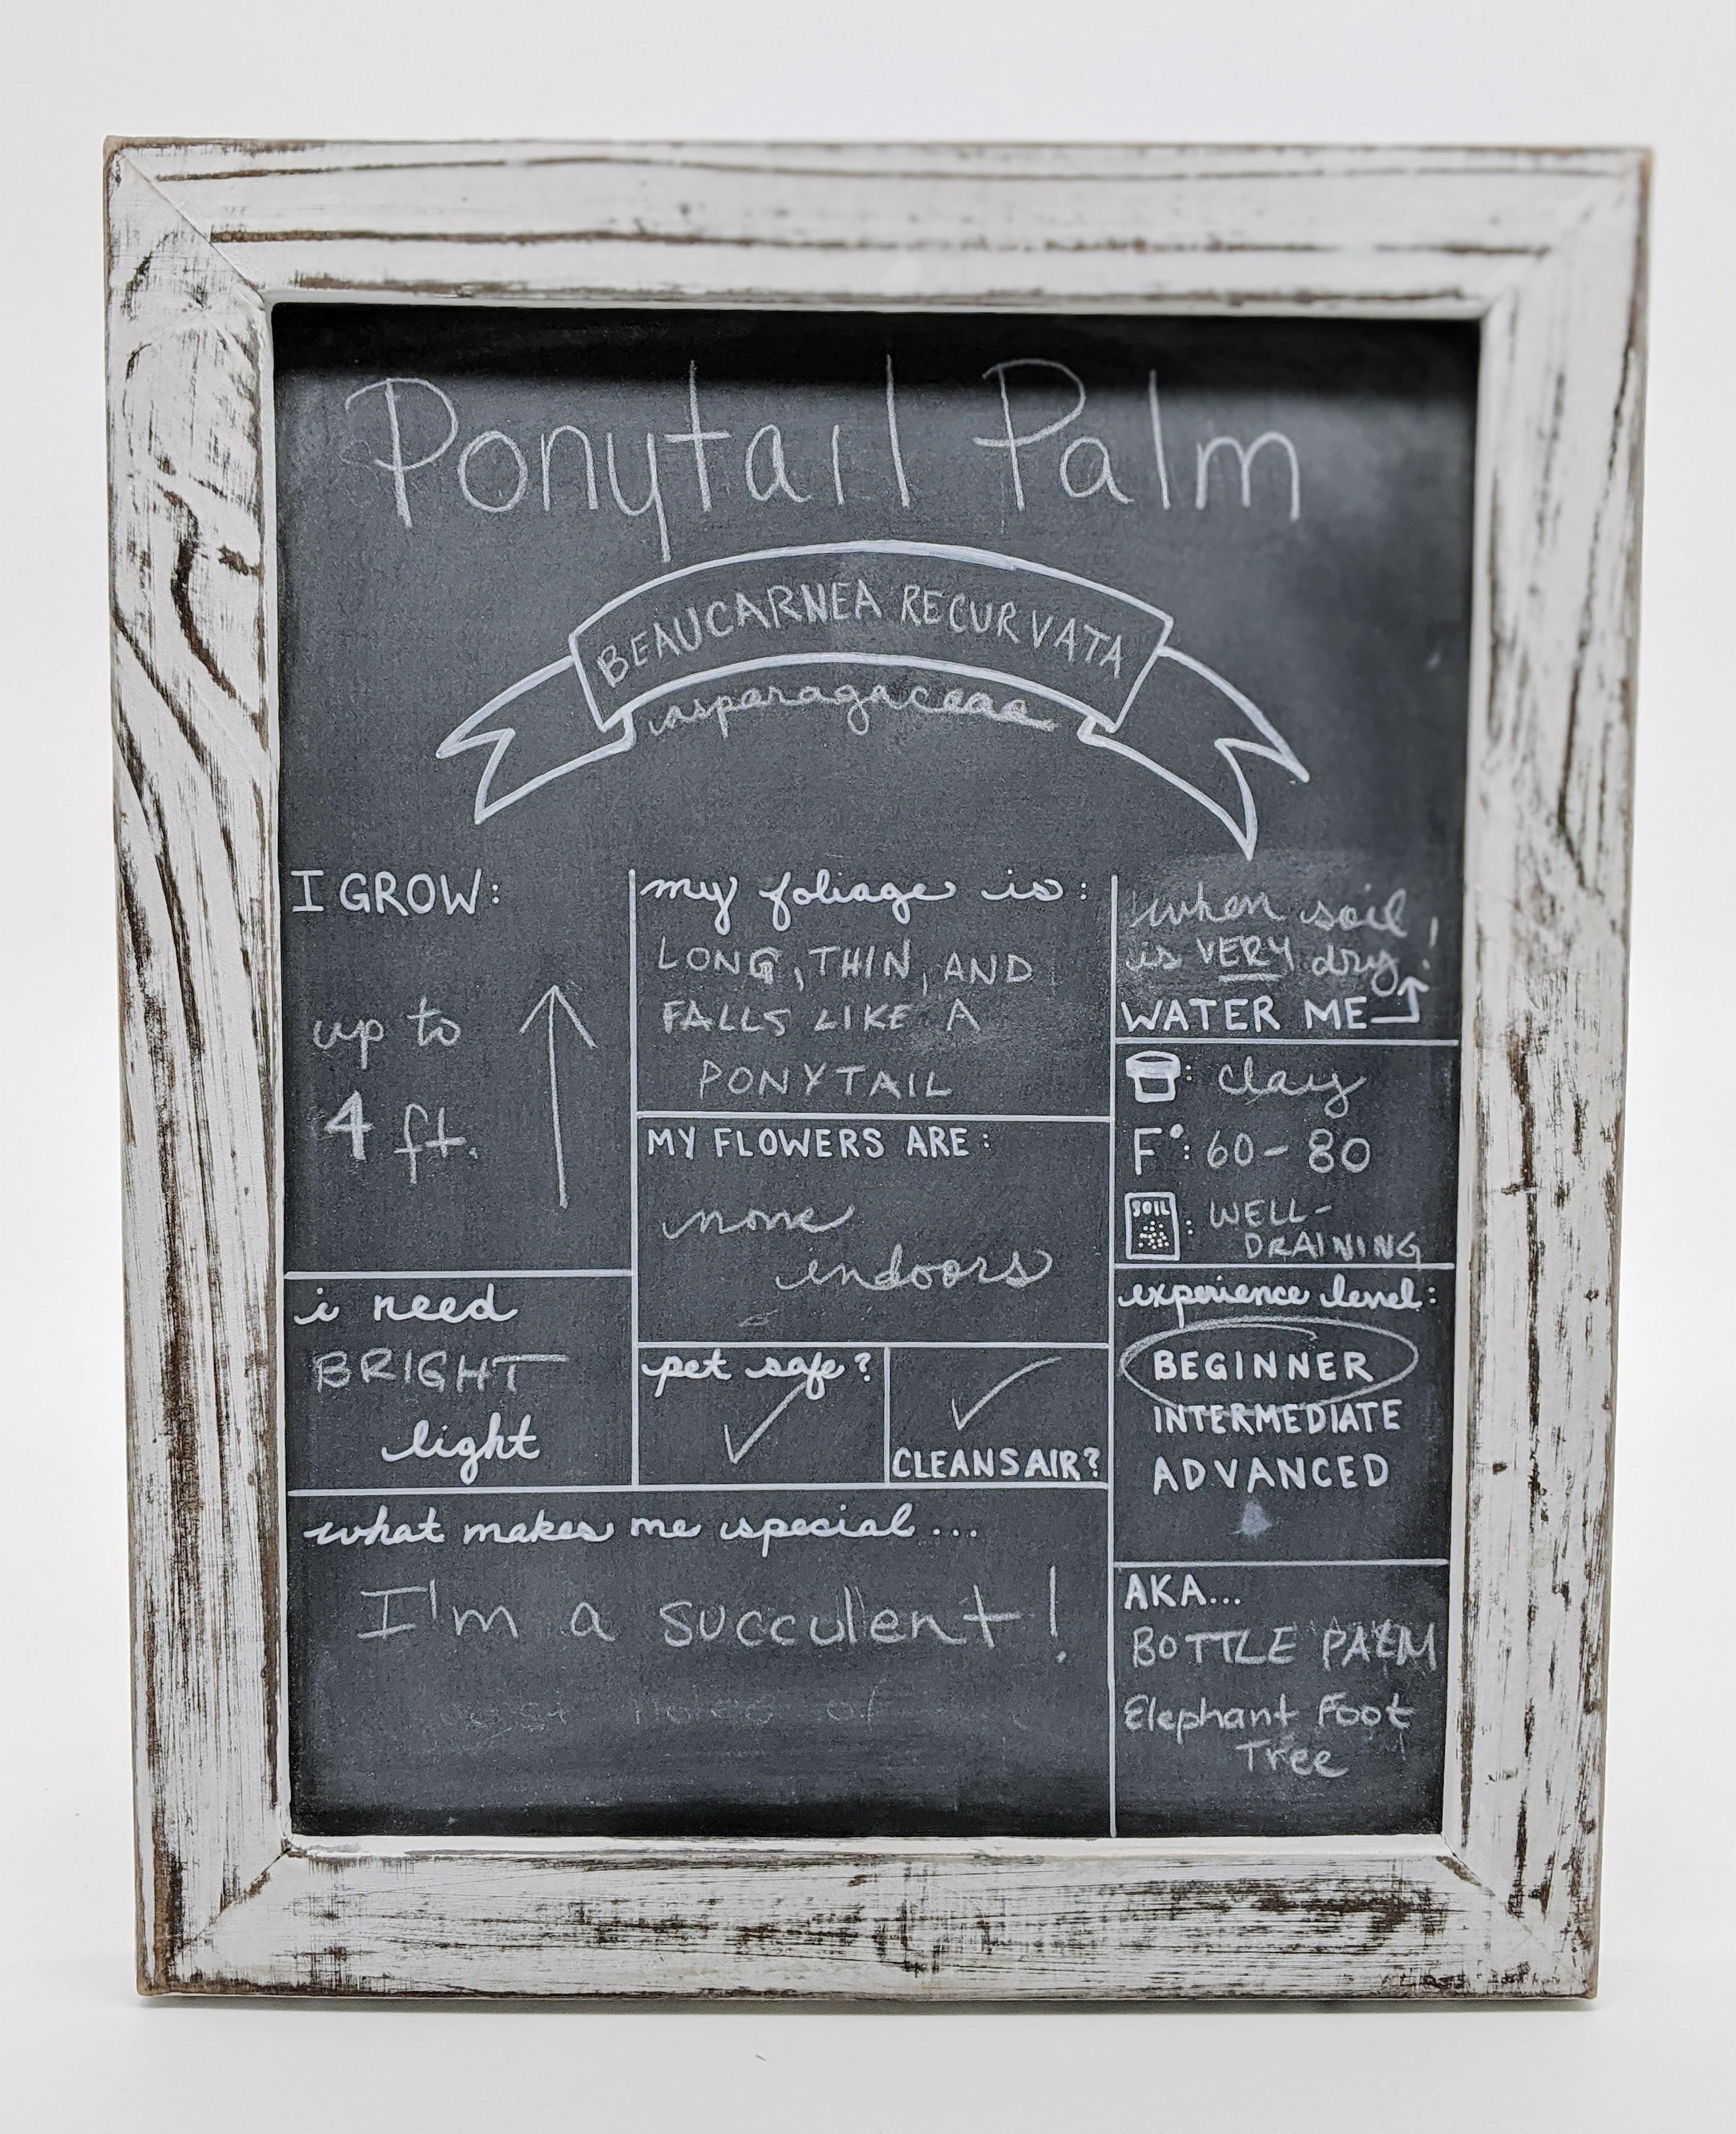 Ponytail Palm
BEAUCARNEA RECURVATA
asparagaceae
I GROW:
up to
4 ft.
i need
BRIGHT
light
my foliage is:
LONG, THIN, AND
FALLS LIKE A
PONYTAIL
MY FLOWERS ARE:
none
indoors
pet safe?
CLEANS AIR?
what makes me special...
I'm a succulent!
when soil
is VERY dry!
WATER ME
: clay
F°: 60-80
SOIL : WELL-
DRAINING
experience level:
BEGINNER
INTERMEDIATE
ADVANCED
AKA...
BOTTLE PALM
Elephant Foot
Tree